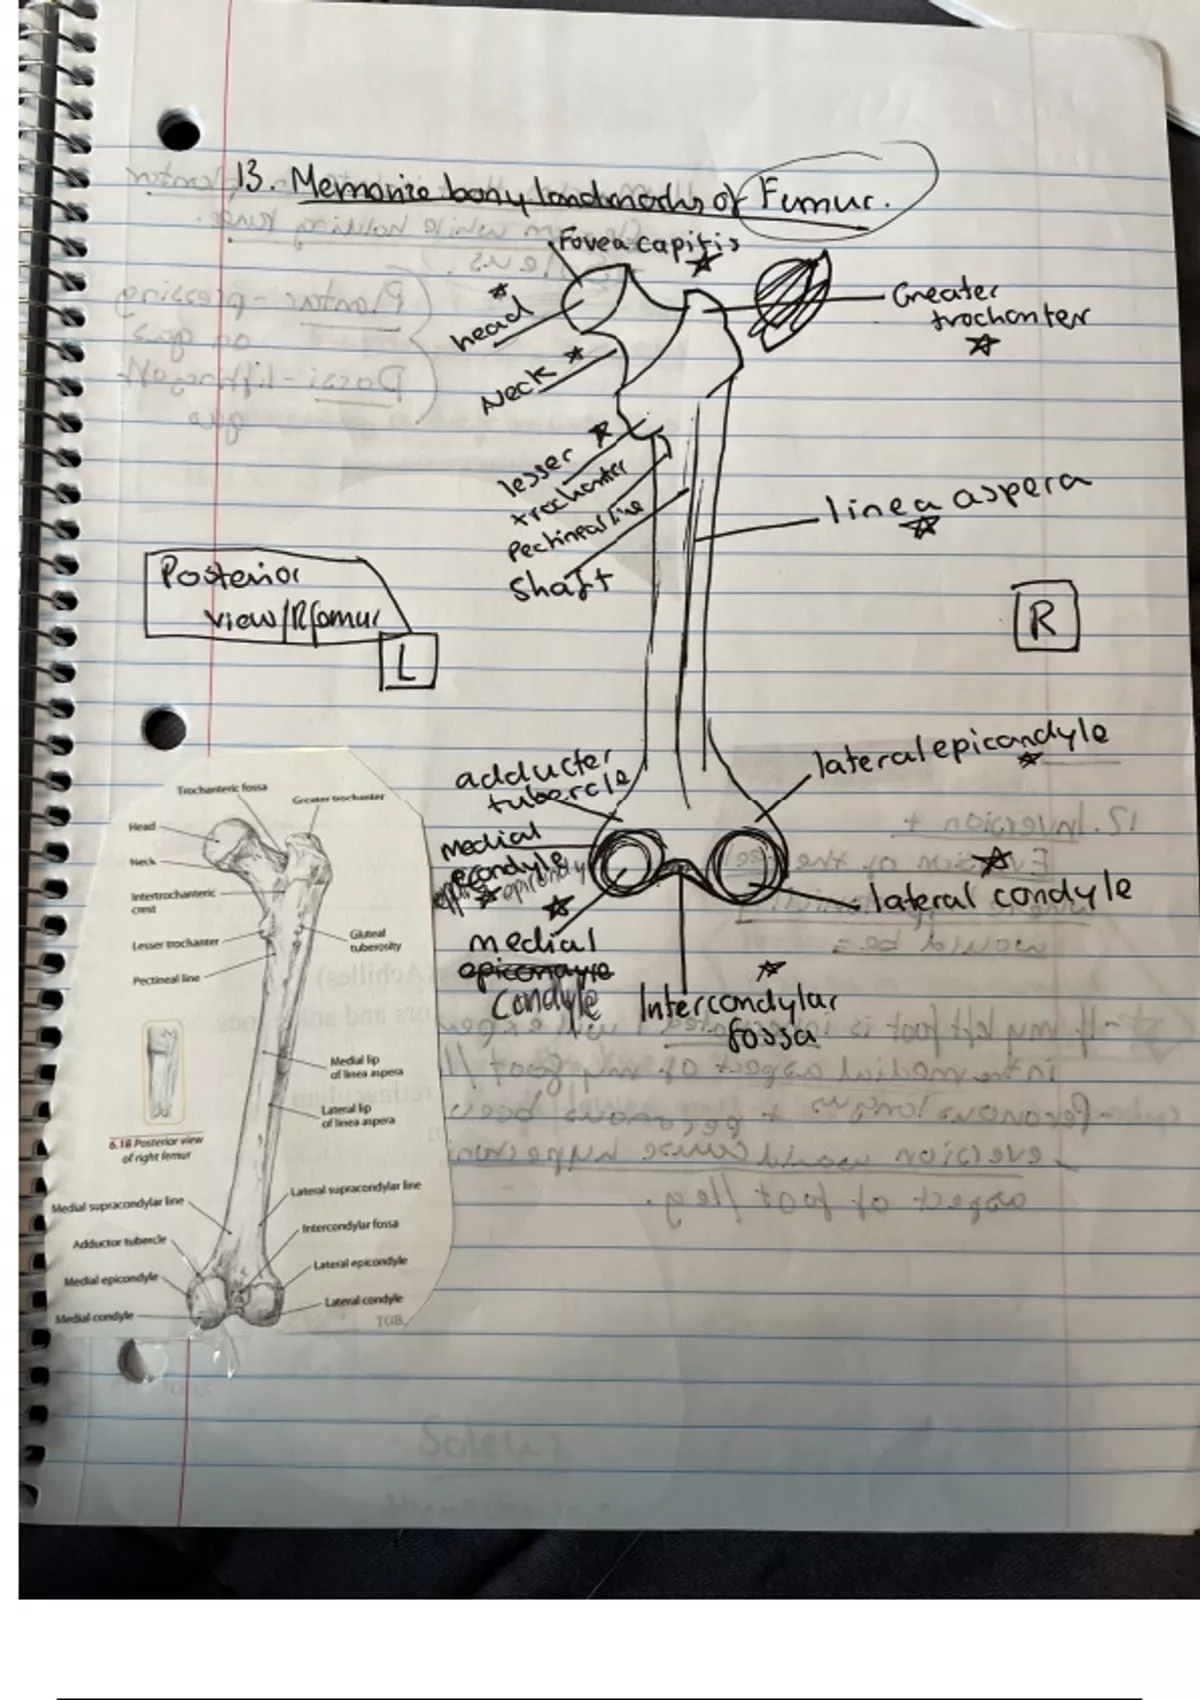 13. Memorize bony landmarks of Femur.
Fovea capitis
head
Neck
Greater
trochanter
lesser
trochanter
Pectineal line
Shaft
linea aspera
Posterior
view/R femur
L
R
adducter
tubercle
lateral epicondyle
medial
epicondyle
lateral condyle
medial
epicondyle
Condyle
Intercondylar
fossa
Trochanteric fossa
Greater trochanter
Head
Neck
Intertrochanteric
crest
Lesser trochanter
Gluteal
tuberosity
Pectineal line
Medial lip
of linea aspera
Lateral lip
of linea aspera
6.18 Posterior view
of right femur
Medial supracondylar line
Lateral supracondylar line
Adductor tubercle
Intercondylar fossa
Medial epicondyle
Lateral epicondyle
Medial condyle
Lateral condyle
TGB